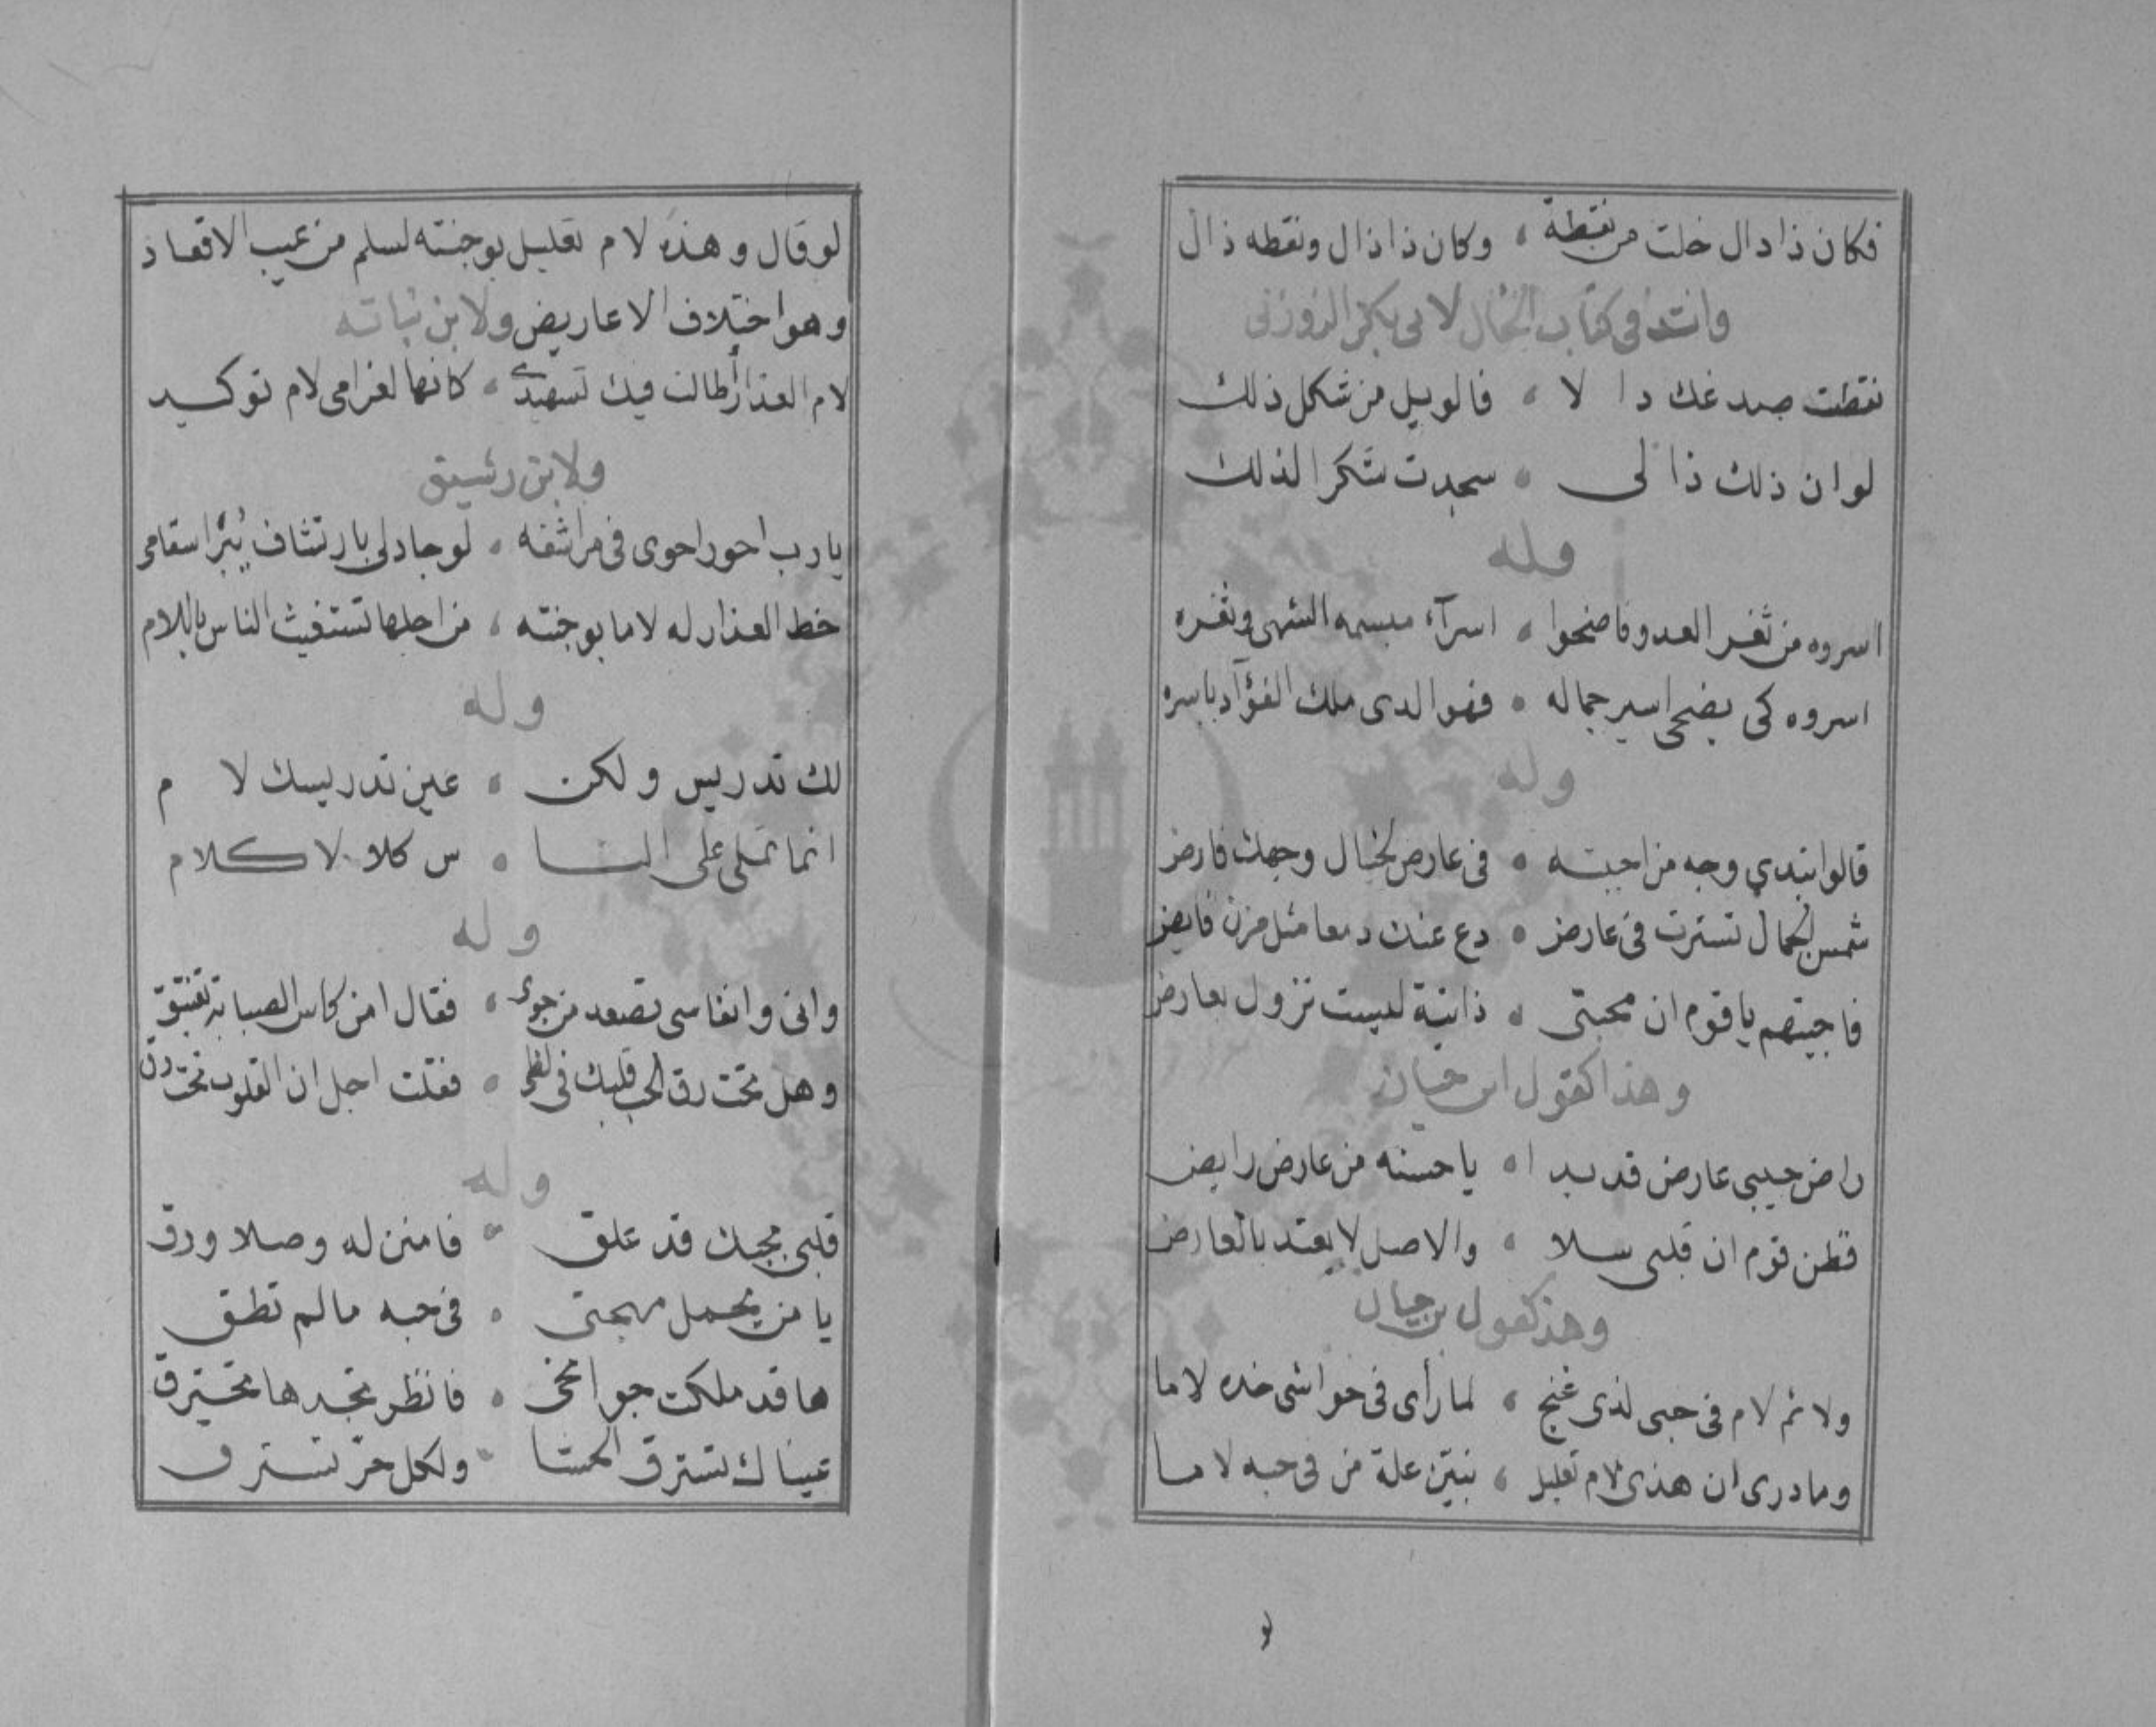 فكان ذا دال خلت من نقطة ، وكان ذا ذال ونقطه ذال
وانشد في كتاب الخال لابي بكر الزوزني
نقطت صدغك دا لا ، فالويل من شكل ذلك
لو ان ذلك ذا لى ، سجدت شكرا لذلك
وله
اسروه من ثغر العدو فاضحوا ، اسرآء مبسمه الشهى وثغره
اسروه كى يضحى اسير جماله ، فهو الدى ملك الفؤآد باسره
وله
قالوا تبدي وجه من احببته ، فى عارض لخيال وجهك فارض
شمس الجمال تسترت فى عارض ، دع عنك دمعا مثل مزن فايض
فاجبتهم يا قوم ان محبتى ، ذاتية ليست تزول بعارض
وهذا كقول ابن حيان
راض حبيبى عارض قد بدا ، يا حسنه من عارض رايض
فظن قوم ان قلبى سلا ، والاصل لا يعتد بالعارض
وهذ كقول بن حيان
ولائم لام فى حبى لذى غنج ، لما رأى فى حواشى خده لاما
وما درى ان هذى لام تعليل ، تبين علة من فى حبه لاما
لو
لو قال وهذه لام تعليل بوجنته لسلم من عيب الاقعاد
وهو اختلاف الاعاريض ولابن نباته
لام العذار أطالت فيك تسهيدى ، كانها لغرامى لام توكيد
ولابن رشيق
يا رب احور احوى فى مراشفه ، لو جاد لى بارتشاف يبرا سقامى
خط العذار له لاما بوجنته ، من اجلها تستغيث الناس باللام
وله
لك تدريس ولكن ، عين تدريسك لا م
انما تملى على النا ، س كلا لا كلام
وله
وانى وانفاسى تصعد من جوى ، فقال امن كاس الصبابة تغتبق
وهل تحت رق الحب قلبك فى لظى ، فقلت اجل ان القلوب تحت رق
وله
قلبى بحبك قد علق ، فامنن له وصلا ورق
يا من يحمل مهجتى ، فى حبه ما لم تطق
ها قد ملكت جوانحى ، فانظر تجدها تحترق
عيناك تسترق الحشا ، ولكل حر تسترق